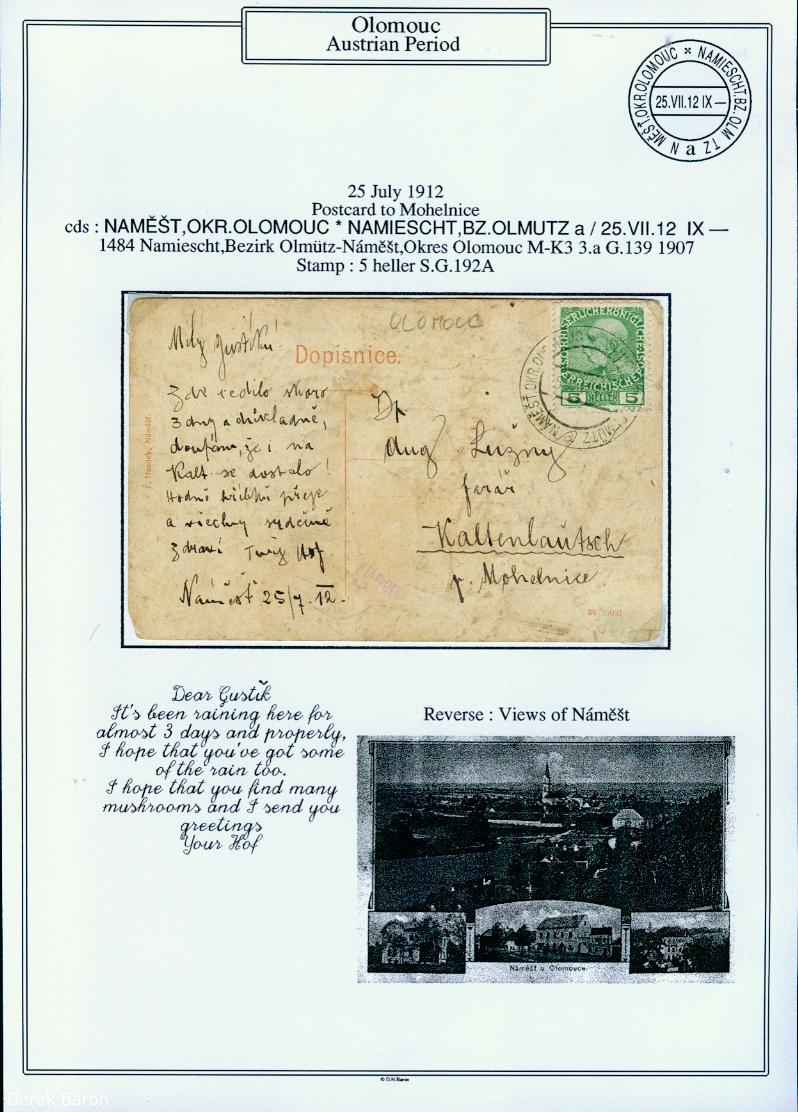 Olomouc
Austrian Period
NAMIESCHT.BZ.OLM TZ a N MĚŠT.OKR.OLOMOUC *
25.VII.12 IX —
25 July 1912
Postcard to Mohelnice
cds : NAMĚŠT,OKR.OLOMOUC * NAMIESCHT,BZ.OLMUTZ a / 25.VII.12 IX —
1484 Namiescht,Bezirk Olmütz-Náměšt,Okres Olomouc M-K3 3.a G.139 1907
Stamp : 5 heller S.G.192A
OLOMOUC
Dopisnice.
Milý Gustíku!
Zde cedilo skoro
3 dny a důkladně,
doufám, že i na
Kalt. se dostalo!
Hodně hříbků přeje
a všechny srdečně
zdraví Tvůj Hof
Náměšť 25/7. 12.
Dp
Aug Lužný
farář
Kaltenlautsch
p. Mohelnice
5 HELLER 5
NAMĚŠT OKR. OLO
Náměšt.
Dear Gustík
It's been raining here for
almost 3 days and properly,
I hope that you've got some
of the rain too.
I hope that you find many
mushrooms and I send you
greetings
Your Hof
Reverse : Views of Náměšt
Náměšt u Olomouce.
© D.N.Baron
Derek Baron